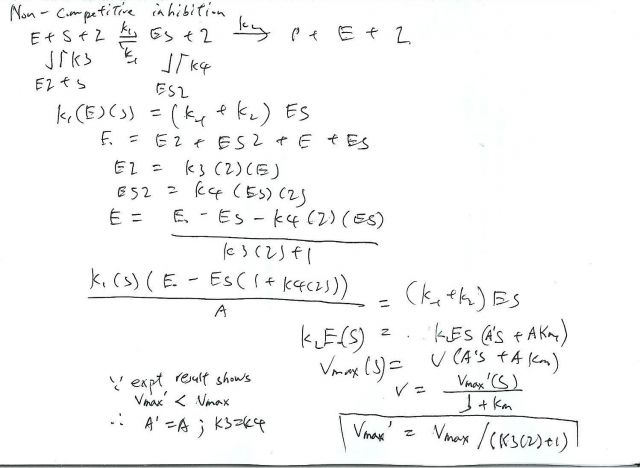 Non-Competitive inhibition
E + S + 2 k1 ⇌ k-1 ES + 2 k2 → P + E + 2
↓↑ k3 ↓↑ k4
E2 + S ES2
k1(E)(S) = (k-1 + k2) ES
E. = E2 + ES2 + E + ES
E2 = k3(2)(E)
ES2 = k4(ES)(2)
E = E. - ES - k4(2)(ES)
k3(2)+1
k1(S)(E. - ES(1 + k4(2))) = (k-1 + k2) ES
A
k2E.(S) = k2ES (A'S + AKm)
Vmax(S) = V(A'S + AKm)
V = Vmax'(S)
S + Km
∵ expt result shows
Vmax' < Vmax
∴ A' = A ; k3=k4
Vmax' = Vmax/(k3(2)+1)